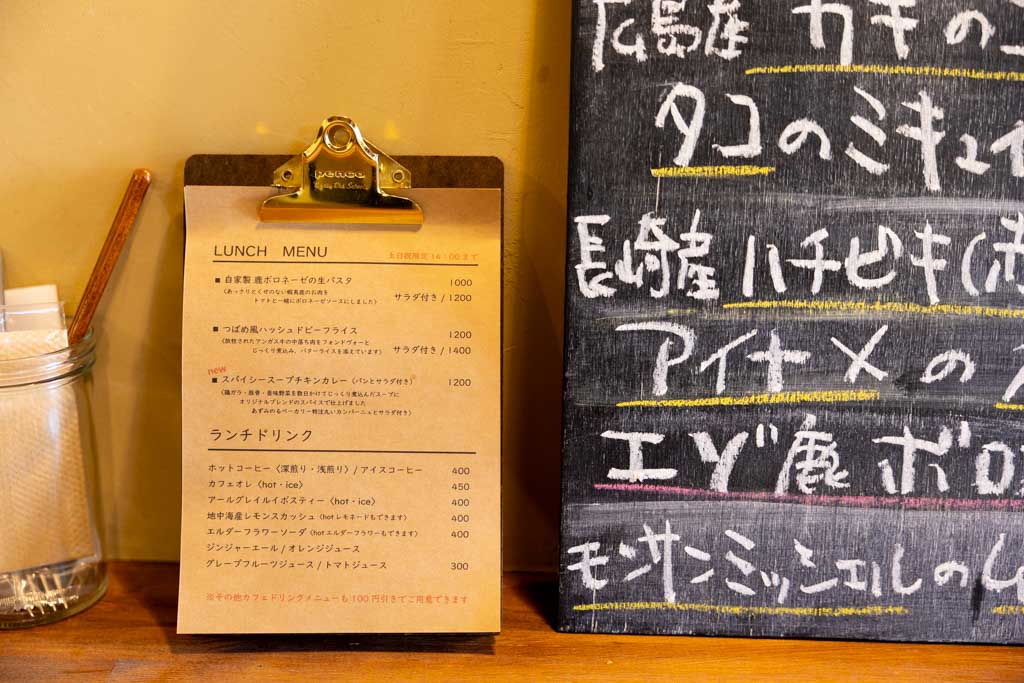 pence
LUNCH MENU
土日祝限定 14:00まで
■ 自家製 鹿ボロネーゼの生パスタ 1000
トマトと一緒にボロネーゼソースにしました) サラダ付き / 1200
■ つばめ風ハッシュドビーフライス 1200
(放牧されたアンガス牛の中落ち肉をフォンドヴォーと
じっくり煮込み、バターライスを添えています) サラダ付き / 1400
new
■ スパイシースープチキンカレー (パンとサラダ付き) 1200
(鶏ガラ・豚骨・香味野菜を数日かけてじっくり煮込んだスープに
オリジナルブレンドのスパイスで仕上げました
あずみのるベーカリー特注丸いカンパーニュとサラダ付き)
ランチドリンク
ホットコーヒー〈深煎り・浅煎り〉/ アイスコーヒー 400
カフェオレ〈hot・ice〉 450
アールグレイルイボスティー〈hot・ice〉 400
地中海産レモンスカッシュ (hot レモネードもできます) 400
エルダーフラワーソーダ (hot エルダーフラワーもできます) 400
ジンジャーエール / オレンジジュース
グレープフルーツジュース / トマトジュース 300
※その他カフェドリンクメニューも100円引きでご用意できます
広島産 カキの
タコのミキュイ
長崎産 ハチビキ(赤
アイナメの
エゾ鹿 ボロ
モンサンミッシェルのム